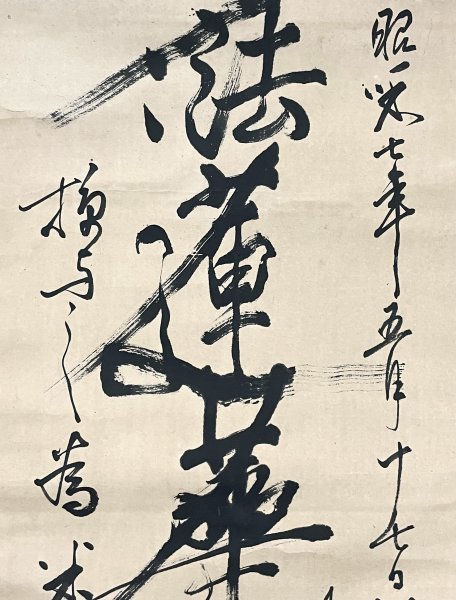 昭和七年五月十七日
法蓮華
授与之為